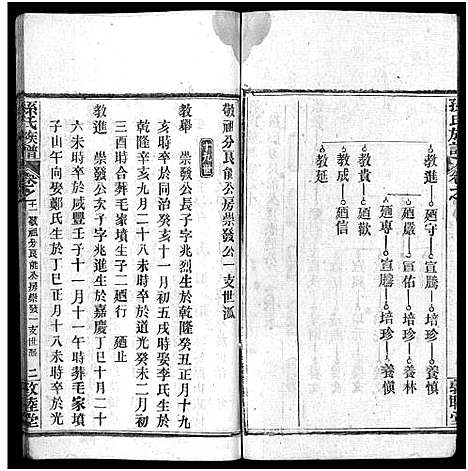 孫氏族譜
教進
廼守
宣騰
培珍
養慎
廼嚴
宣佑
培珍
養林
廼專
宣騰
教貴
廼歡
教成
廼信
教延
敬祖分良能公房崇發公一支世派
十九世
教舉 崇發公長子字兆烈生於乾隆癸丑正月十九
亥時歿於同治癸亥十一月初五戌時娶李氏生於
乾隆辛亥九月二十八未時歿於道光癸未二月初
三酉時合葬毛家墳生子二廼行 廼止
教進 崇發公次子字兆進生於嘉慶丁巳十月二十
六未時歿於咸豐壬子十一月十一午時葬毛家墳
子山午向娶鄭氏生於丁巳正月十八未時歿於光
孫氏族譜
卷之
敬祖分良能公房崇發一支世派
二
敦睦堂